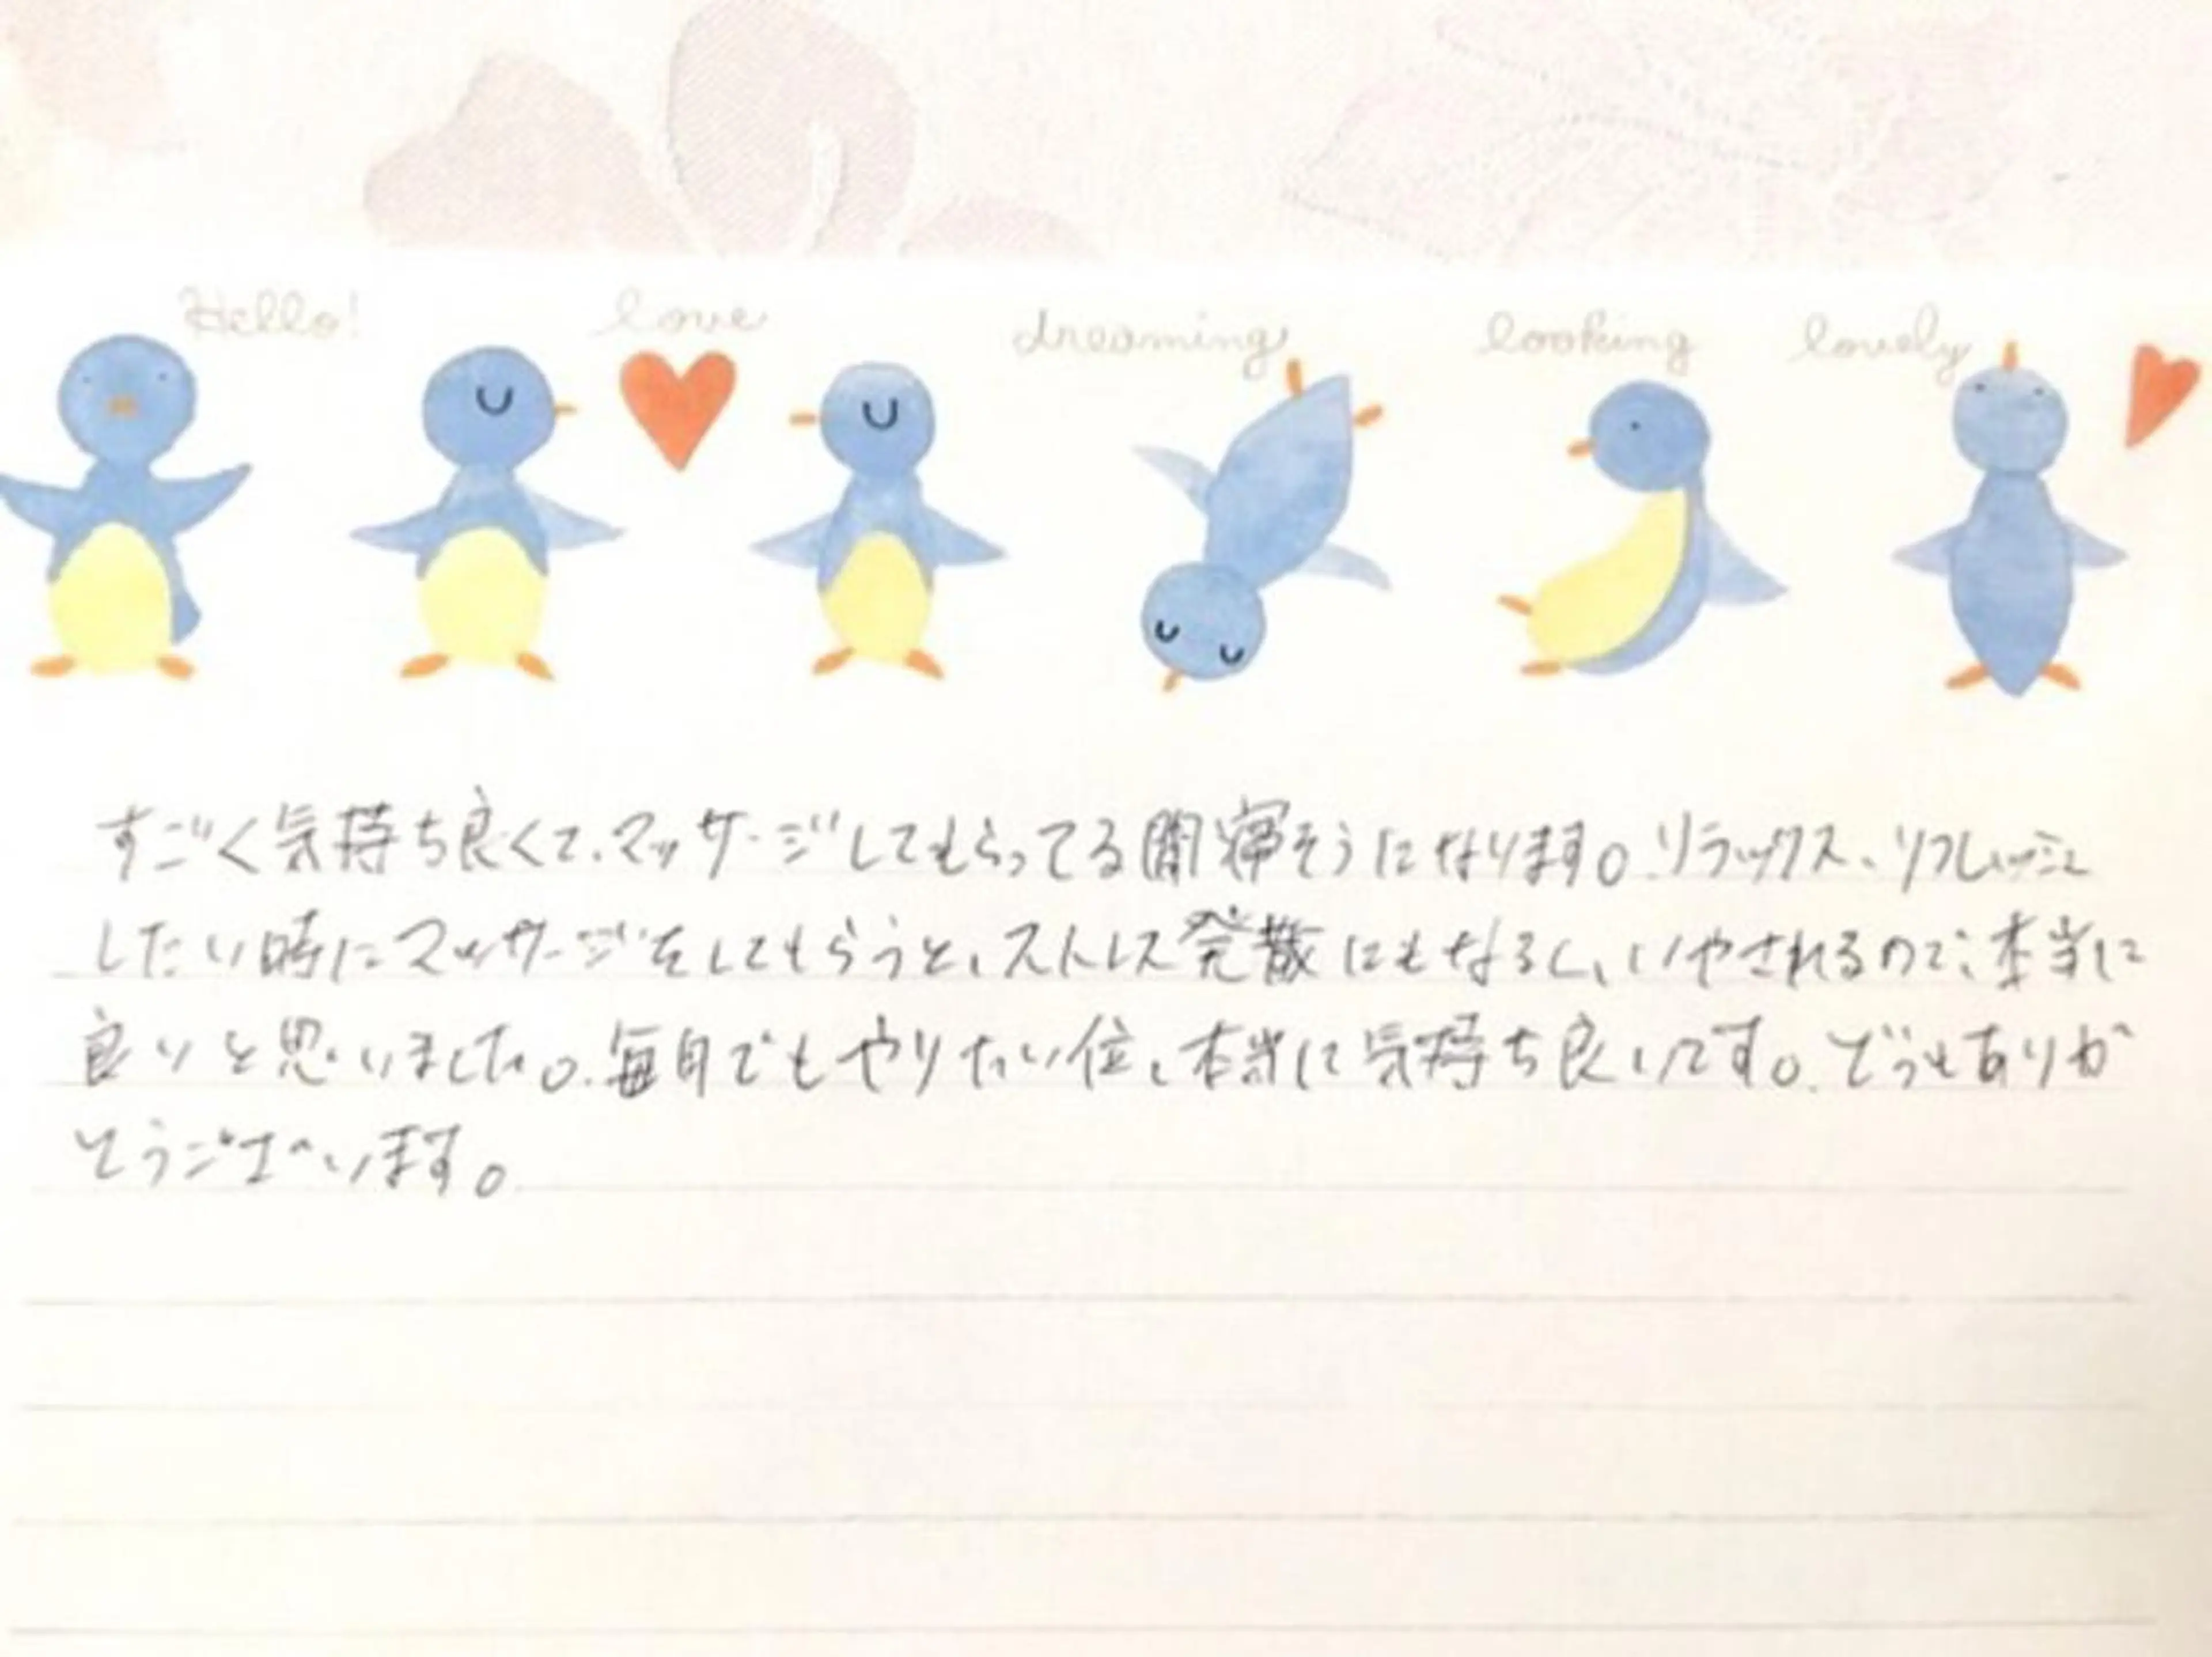 Hello! love dreaming looking lovely
すごく気持ち良くて、マッサージしてもらってる間寝そうになります。リラックス、リフレッシュ
したい時にマッサージをしてもらうと、ストレス発散にもなるし、いやされるので、本当に
良いと思いました。毎日でもやりたい位、本当に気持ち良いです。どうもありが
とうございます。